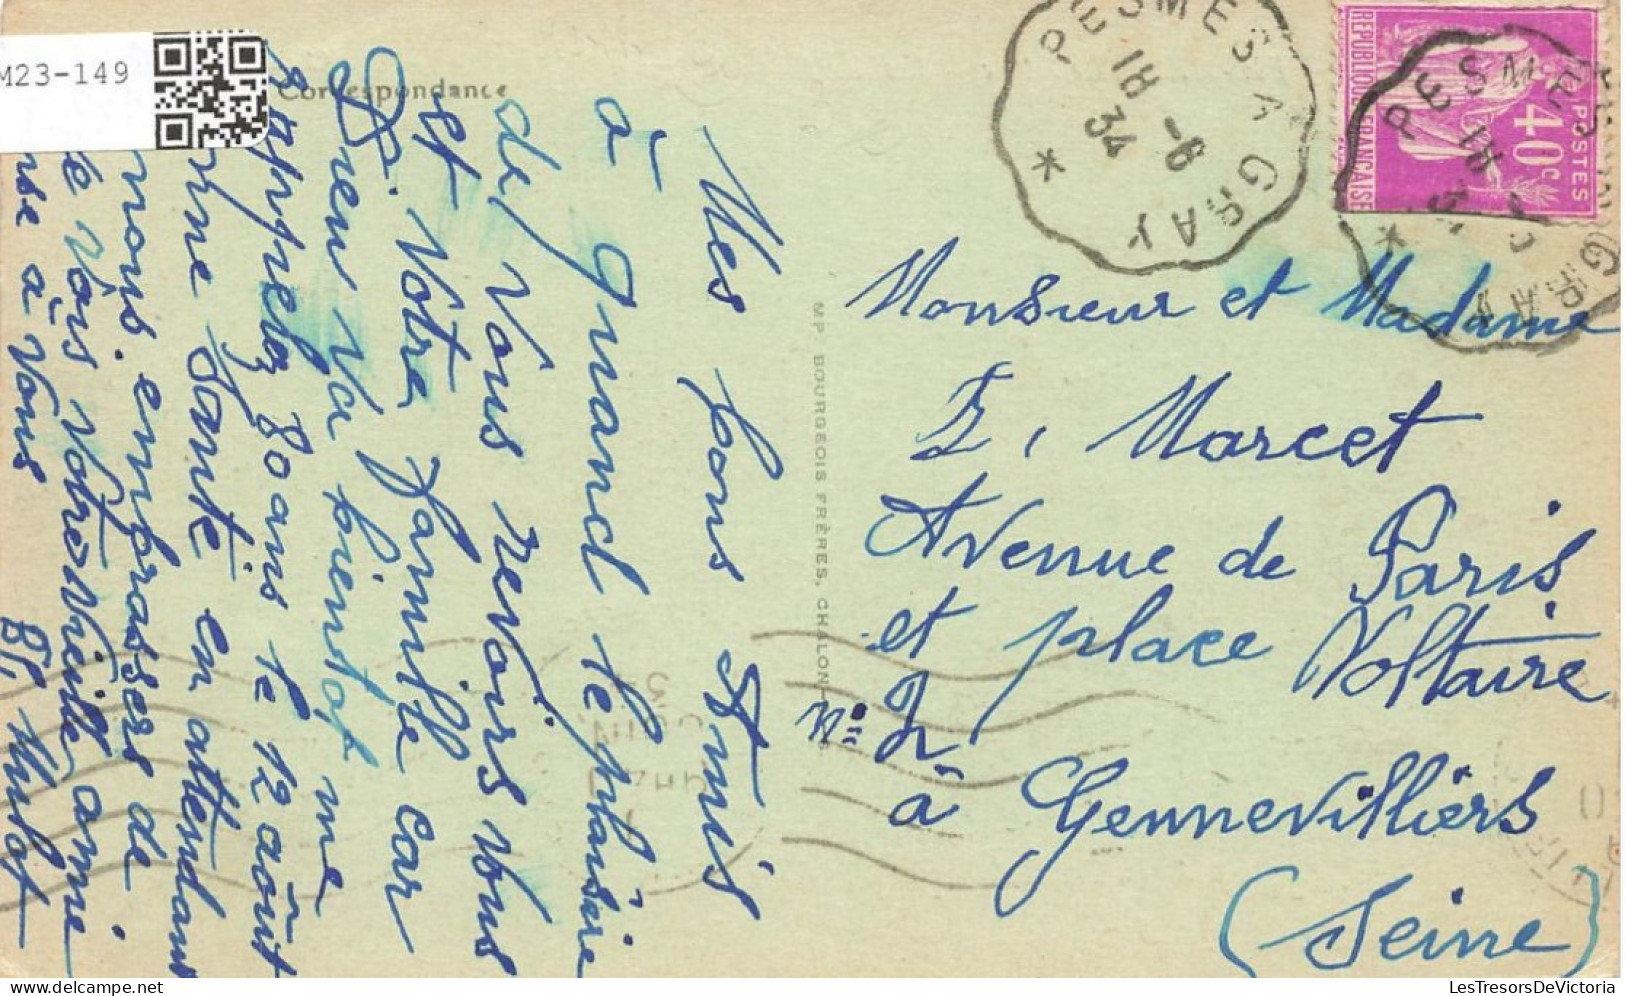 M23-149
Correspondance
Mes bons Amis
à quand le plaisire
de Vous revoirs Vous
et Votre famille car
Dieu Va bientot me
Apprelez 80 ans le 12 août
une Santé en attendant
nous embrasser de
Vois Votre Vieille amie
à Vous
Bl. Mulot
MP BOURGEOIS FRÈRES, CHALON
PESMES A GRAY
18 -8
34
*
REPUBLIQUE FRANÇAISE
POSTES
40c
PESMES
18
GRAY
*
Monsieur et Madame
L, Marcet
Avenue de Paris
et place Voltaire
No 2,
à Gennevilliers
(Seine)
LesTresorsDeVictoria